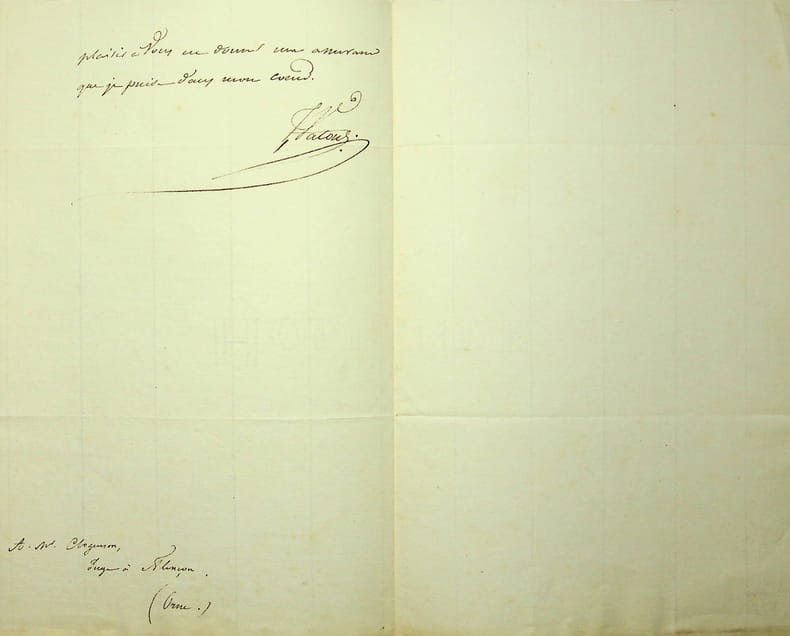 plaisir à Vous en donner une assurance
que je puise dans mon coeur.
Vatout.
A. Mr. Clogenson,
Juge à Alençon,
(Orne.)